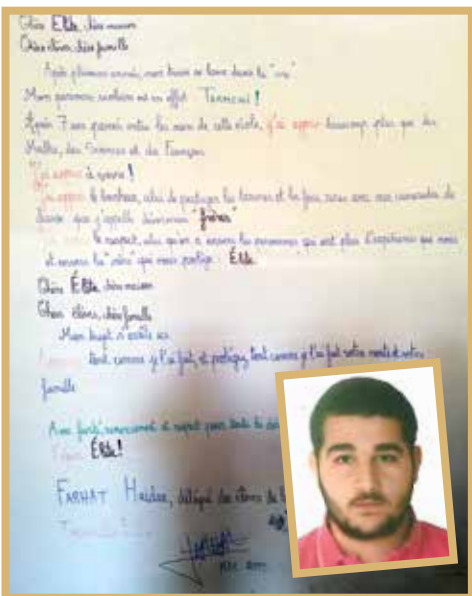 Chère Élite, chère maison
Chers élèves, chère famille
Après plusieurs années, me
Mon parcours scolaire est en effet Terminé!
Après 7 ans passés entre les murs de cette école, j'ai appris beaucoup plus que des
Maths, des Sciences et du Français
J'ai appris à vivre!
J'ai appris le bonheur, celui de partager les larmes et les fous rires avec mes camarades de
classe que j'appelle désormais "frères"
le respect, celui qu'on a envers les personnes qui ont plus d'expérience que nous
et envers la "mère" qui nous protège: Élite
Chère Élite, chère maison
Chers élèves, chère famille
Mon trajet s'arrête ici
tout comme je l'ai fait, et protégez, tout comme je l'ai fait votre
famille
Avec fierté, remerciement et respect pour toute la
Élite!
FARHAT Haidar, délégué des élèves de